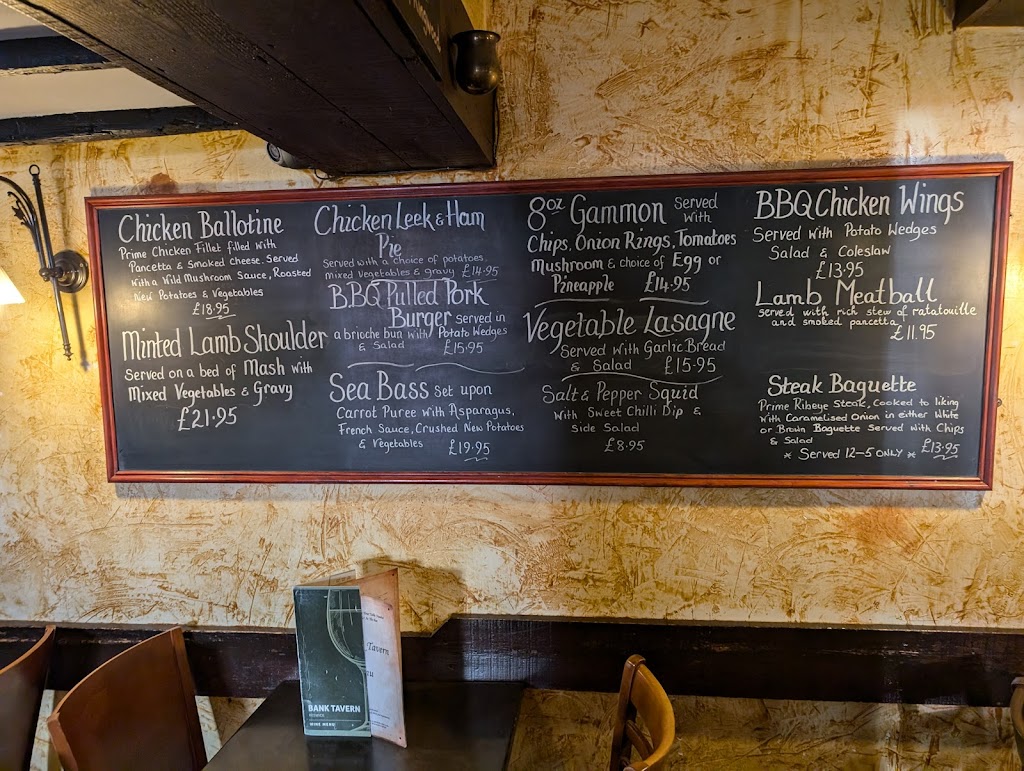 Chicken Ballotine
Prime Chicken Fillet filled with
Pancetta & Smoked Cheese. Served
with a Wild Mushroom Sauce, Roasted
New Potatoes & Vegetables
£18.95
Minted Lamb Shoulder
Served on a bed of Mash with
Mixed Vegetables & Gravy
£21.95
Chicken Leek & Ham
Pie
Served with a choice of potatoes,
mixed Vegetables & gravy £14.95
BBQ Pulled Pork
Burger Served in
a brioche bun with Potato Wedges
& Salad £15.95
Sea Bass Set upon
Carrot Puree with Asparagus,
French Sauce, Crushed New Potatoes
& Vegetables £19.95
8oz Gammon Served
with
Chips, Onion Rings, Tomatoes
Mushroom & choice of Egg or
Pineapple £14.95
Vegetable Lasagne
Served with Garlic Bread
& Salad £15.95
Salt & Pepper Squid
with Sweet Chilli Dip &
Side Salad
£8.95
BBQ Chicken Wings
Served with Potato Wedges
Salad & Coleslaw
£13.95
Lamb Meatball
Served with rich stew of ratatouille
and smoked pancetta
£11.95
Steak Baguette
Prime Ribeye Steak, Cooked to liking
with Caramelised Onion in either White
or Brown Baguette Served with Chips
& Salad
* Served 12-5 ONLY * £13.95
BANK TAVERN
WINE MENU
Tavern